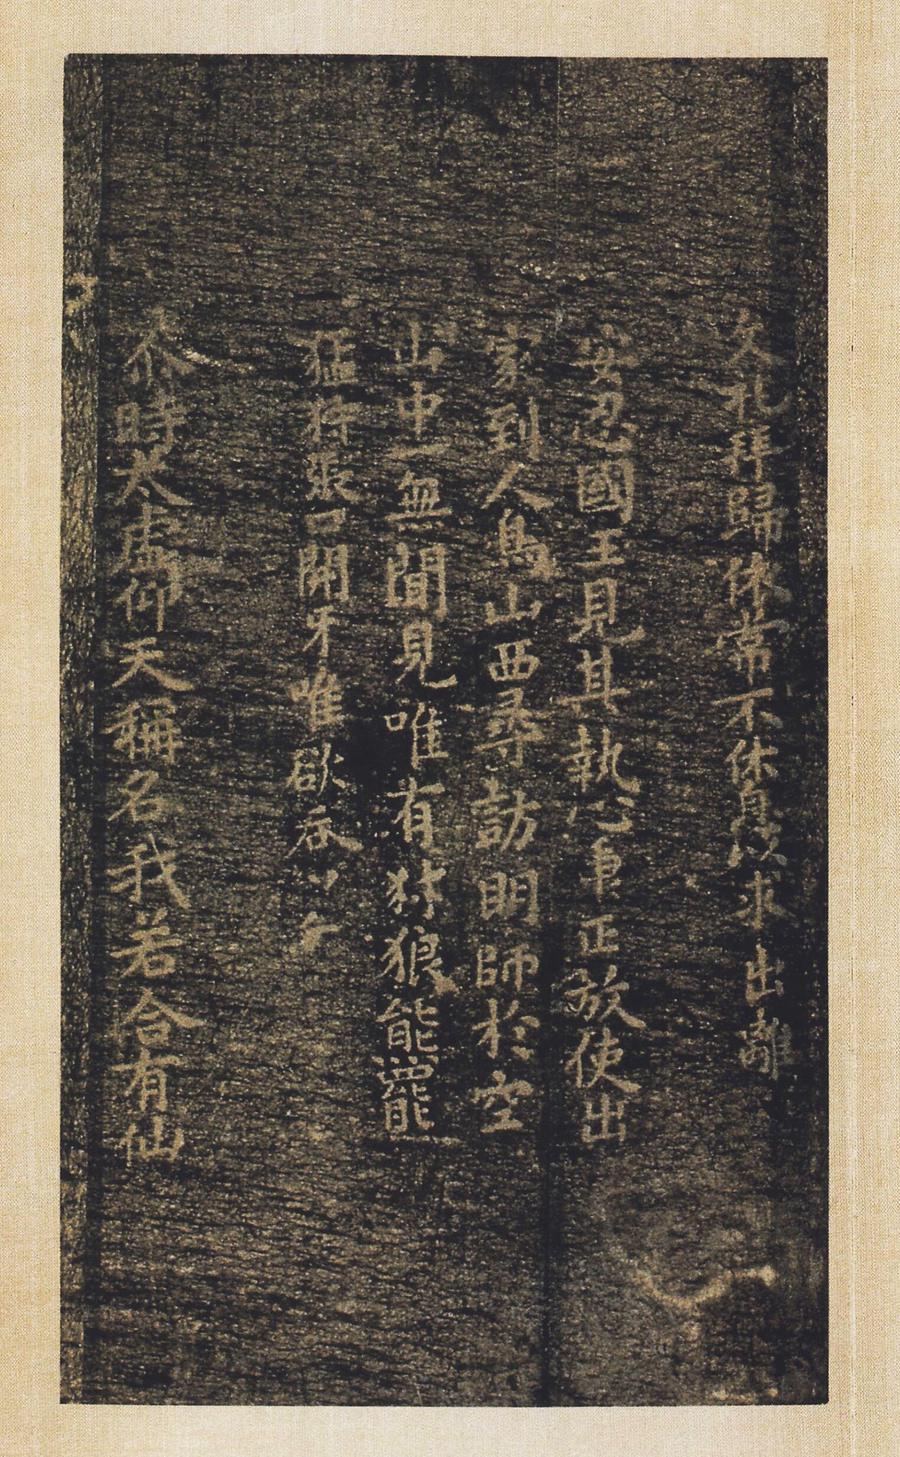 久礼拜歸依常不休息以求出離
安忍國王見其執心事正放使出
家到人鳥山西尋訪明師於空
山中一無聞見唯有犲狼能羆
猛狩張口開牙唯欲吞
尒時太虛仰天稱名我若合有仙